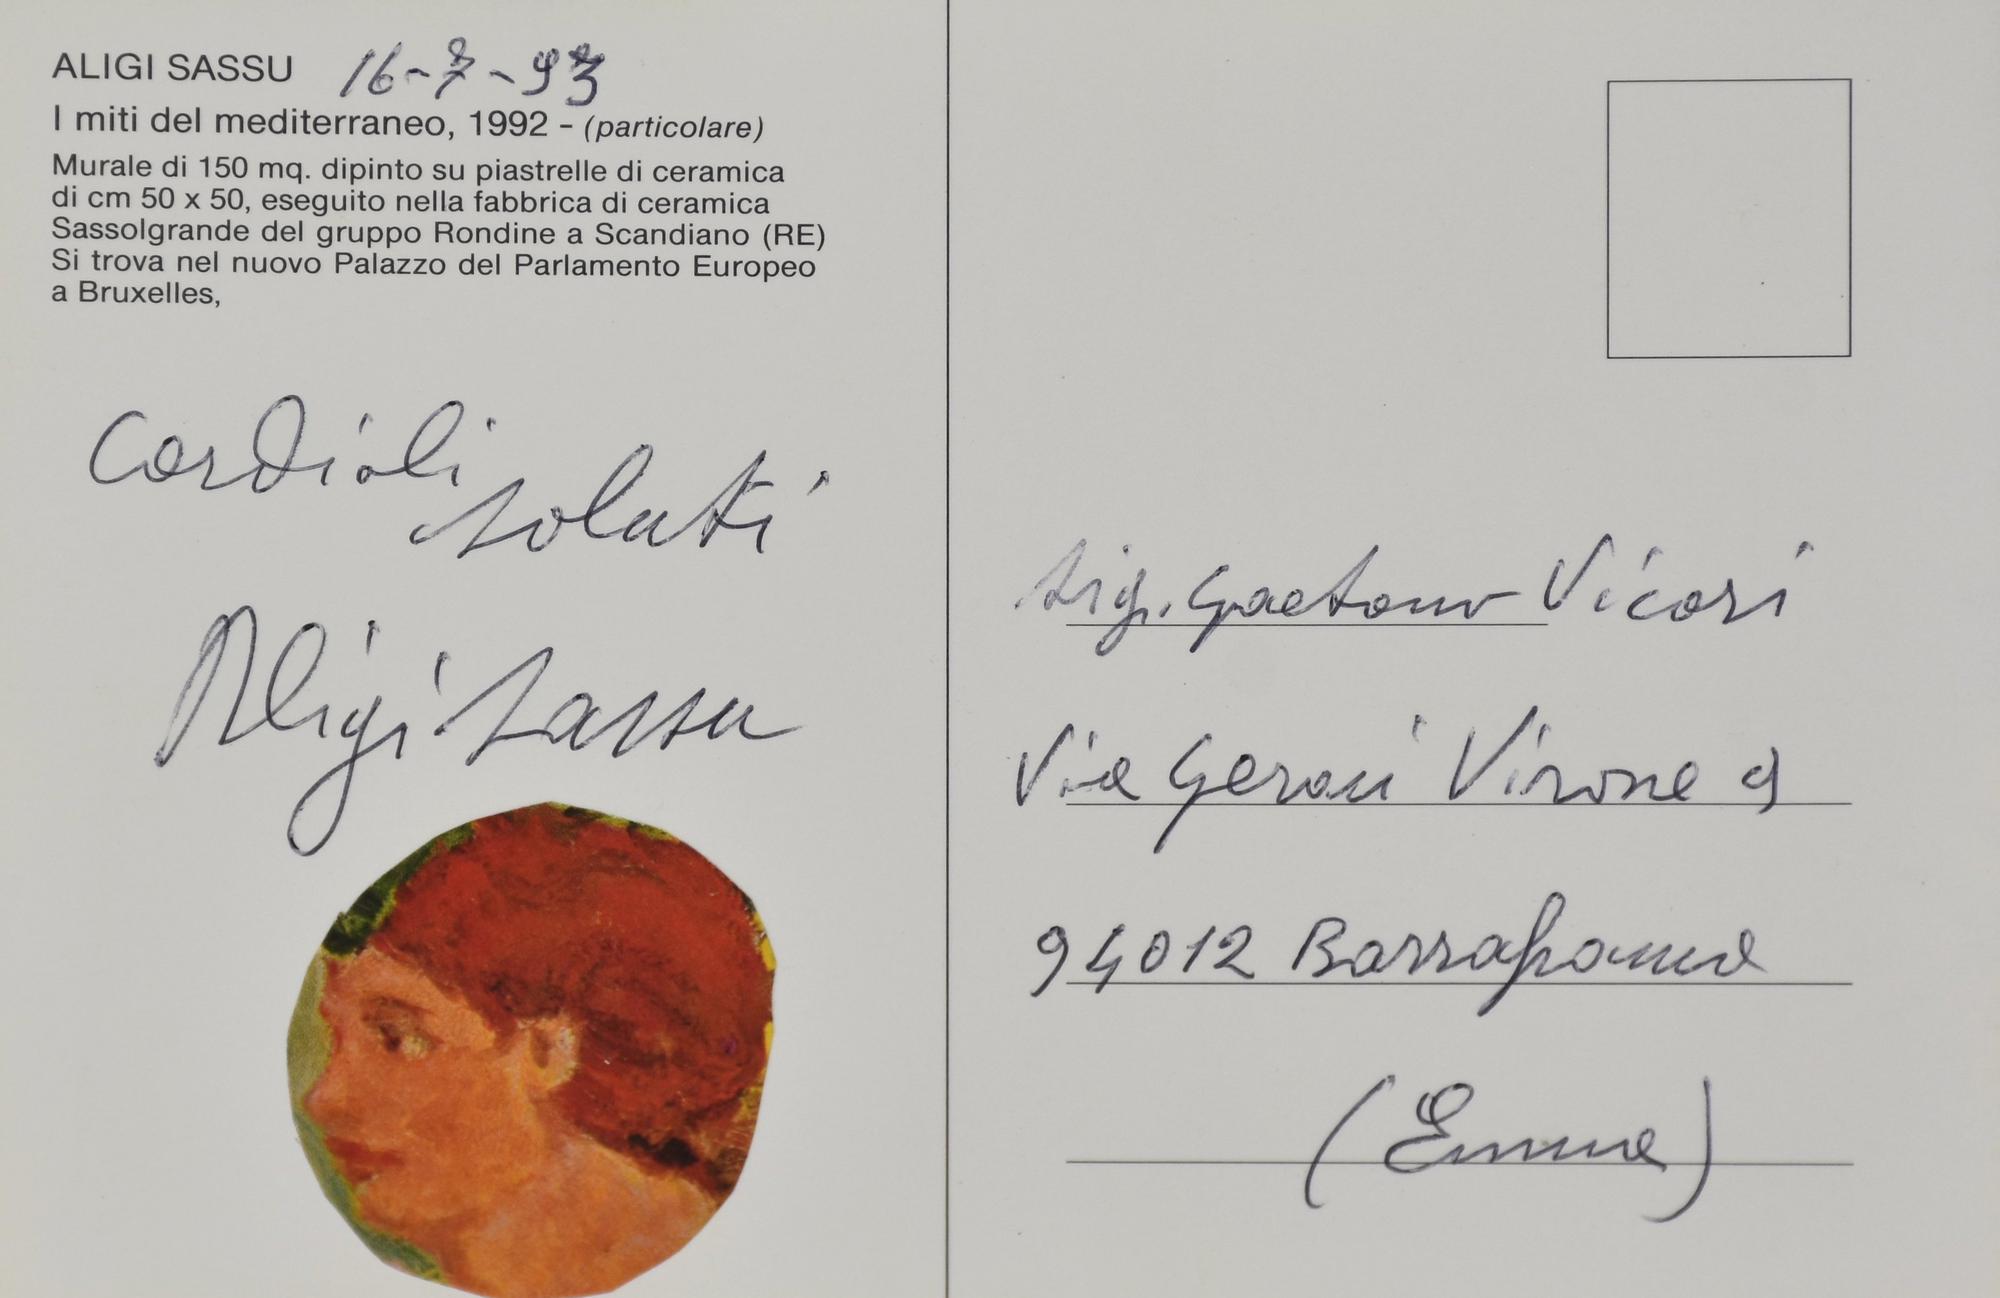 ALIGI SASSU 16-7-93
I miti del mediterraneo, 1992 - (particolare)
Murale di 150 mq. dipinto su piastrelle di ceramica
di cm 50 x 50, eseguito nella fabbrica di ceramica
Sassolgrande del gruppo Rondine a Scandiano (RE)
Si trova nel nuovo Palazzo del Parlamento Europeo
a Bruxelles,
Cordiali
saluti
Aligi Sassu
Sig. Gaetano Vicari
Via Geraci Virone 9
94012 Barrafranca
(Enna)